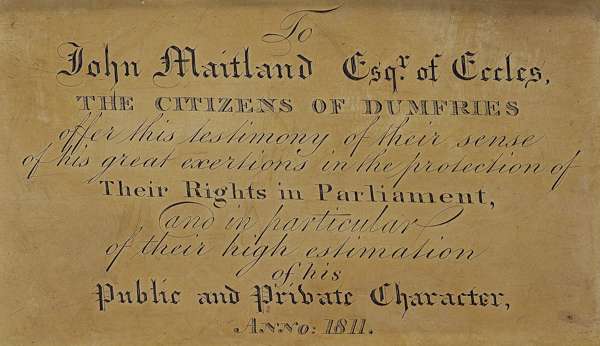 To
John Maitland Esqr. of Eccles,
THE CITIZENS OF DUMFRIES
offer this testimony of their sense
of his great exertions in the protection of
Their Rights in Parliament,
and in particular
of their high estimation
of his
Public and Private Character,
ANNO: 1811.